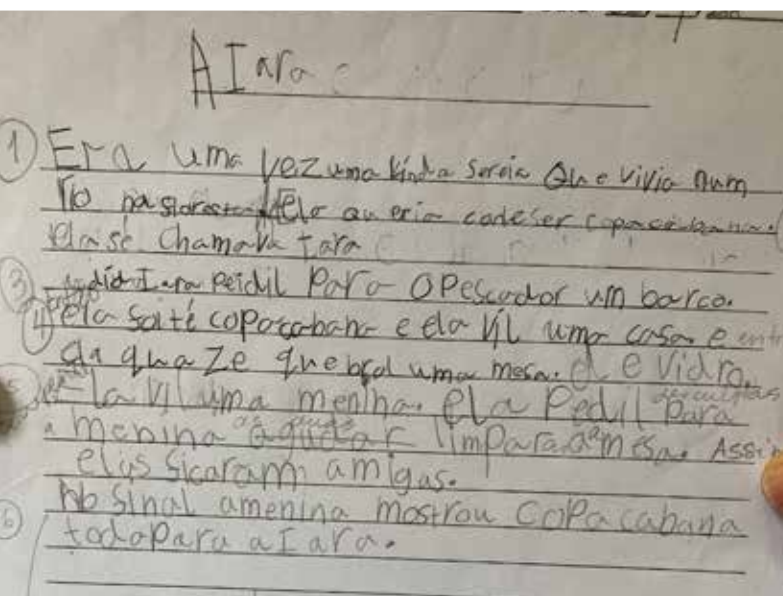 A Iara
1) Era uma vez uma linda sereia que vivia num
rio na floresta. Ela queria conheser copacabana.
ela se chamava Iara
3) dia Iara peidil Para O Pescador um barco.
4) Ela foi té copacabana e ela vil uma casa e entr
da quaze quebrol uma mesa. de vidro.
Ela vil uma menina. Ela Pedil desculpas Para
a menina ajudar limpar a mesa. Assim
elas ficaram amigas.
6) No final amenina mostrou COPacabana
toda Para a Iara.